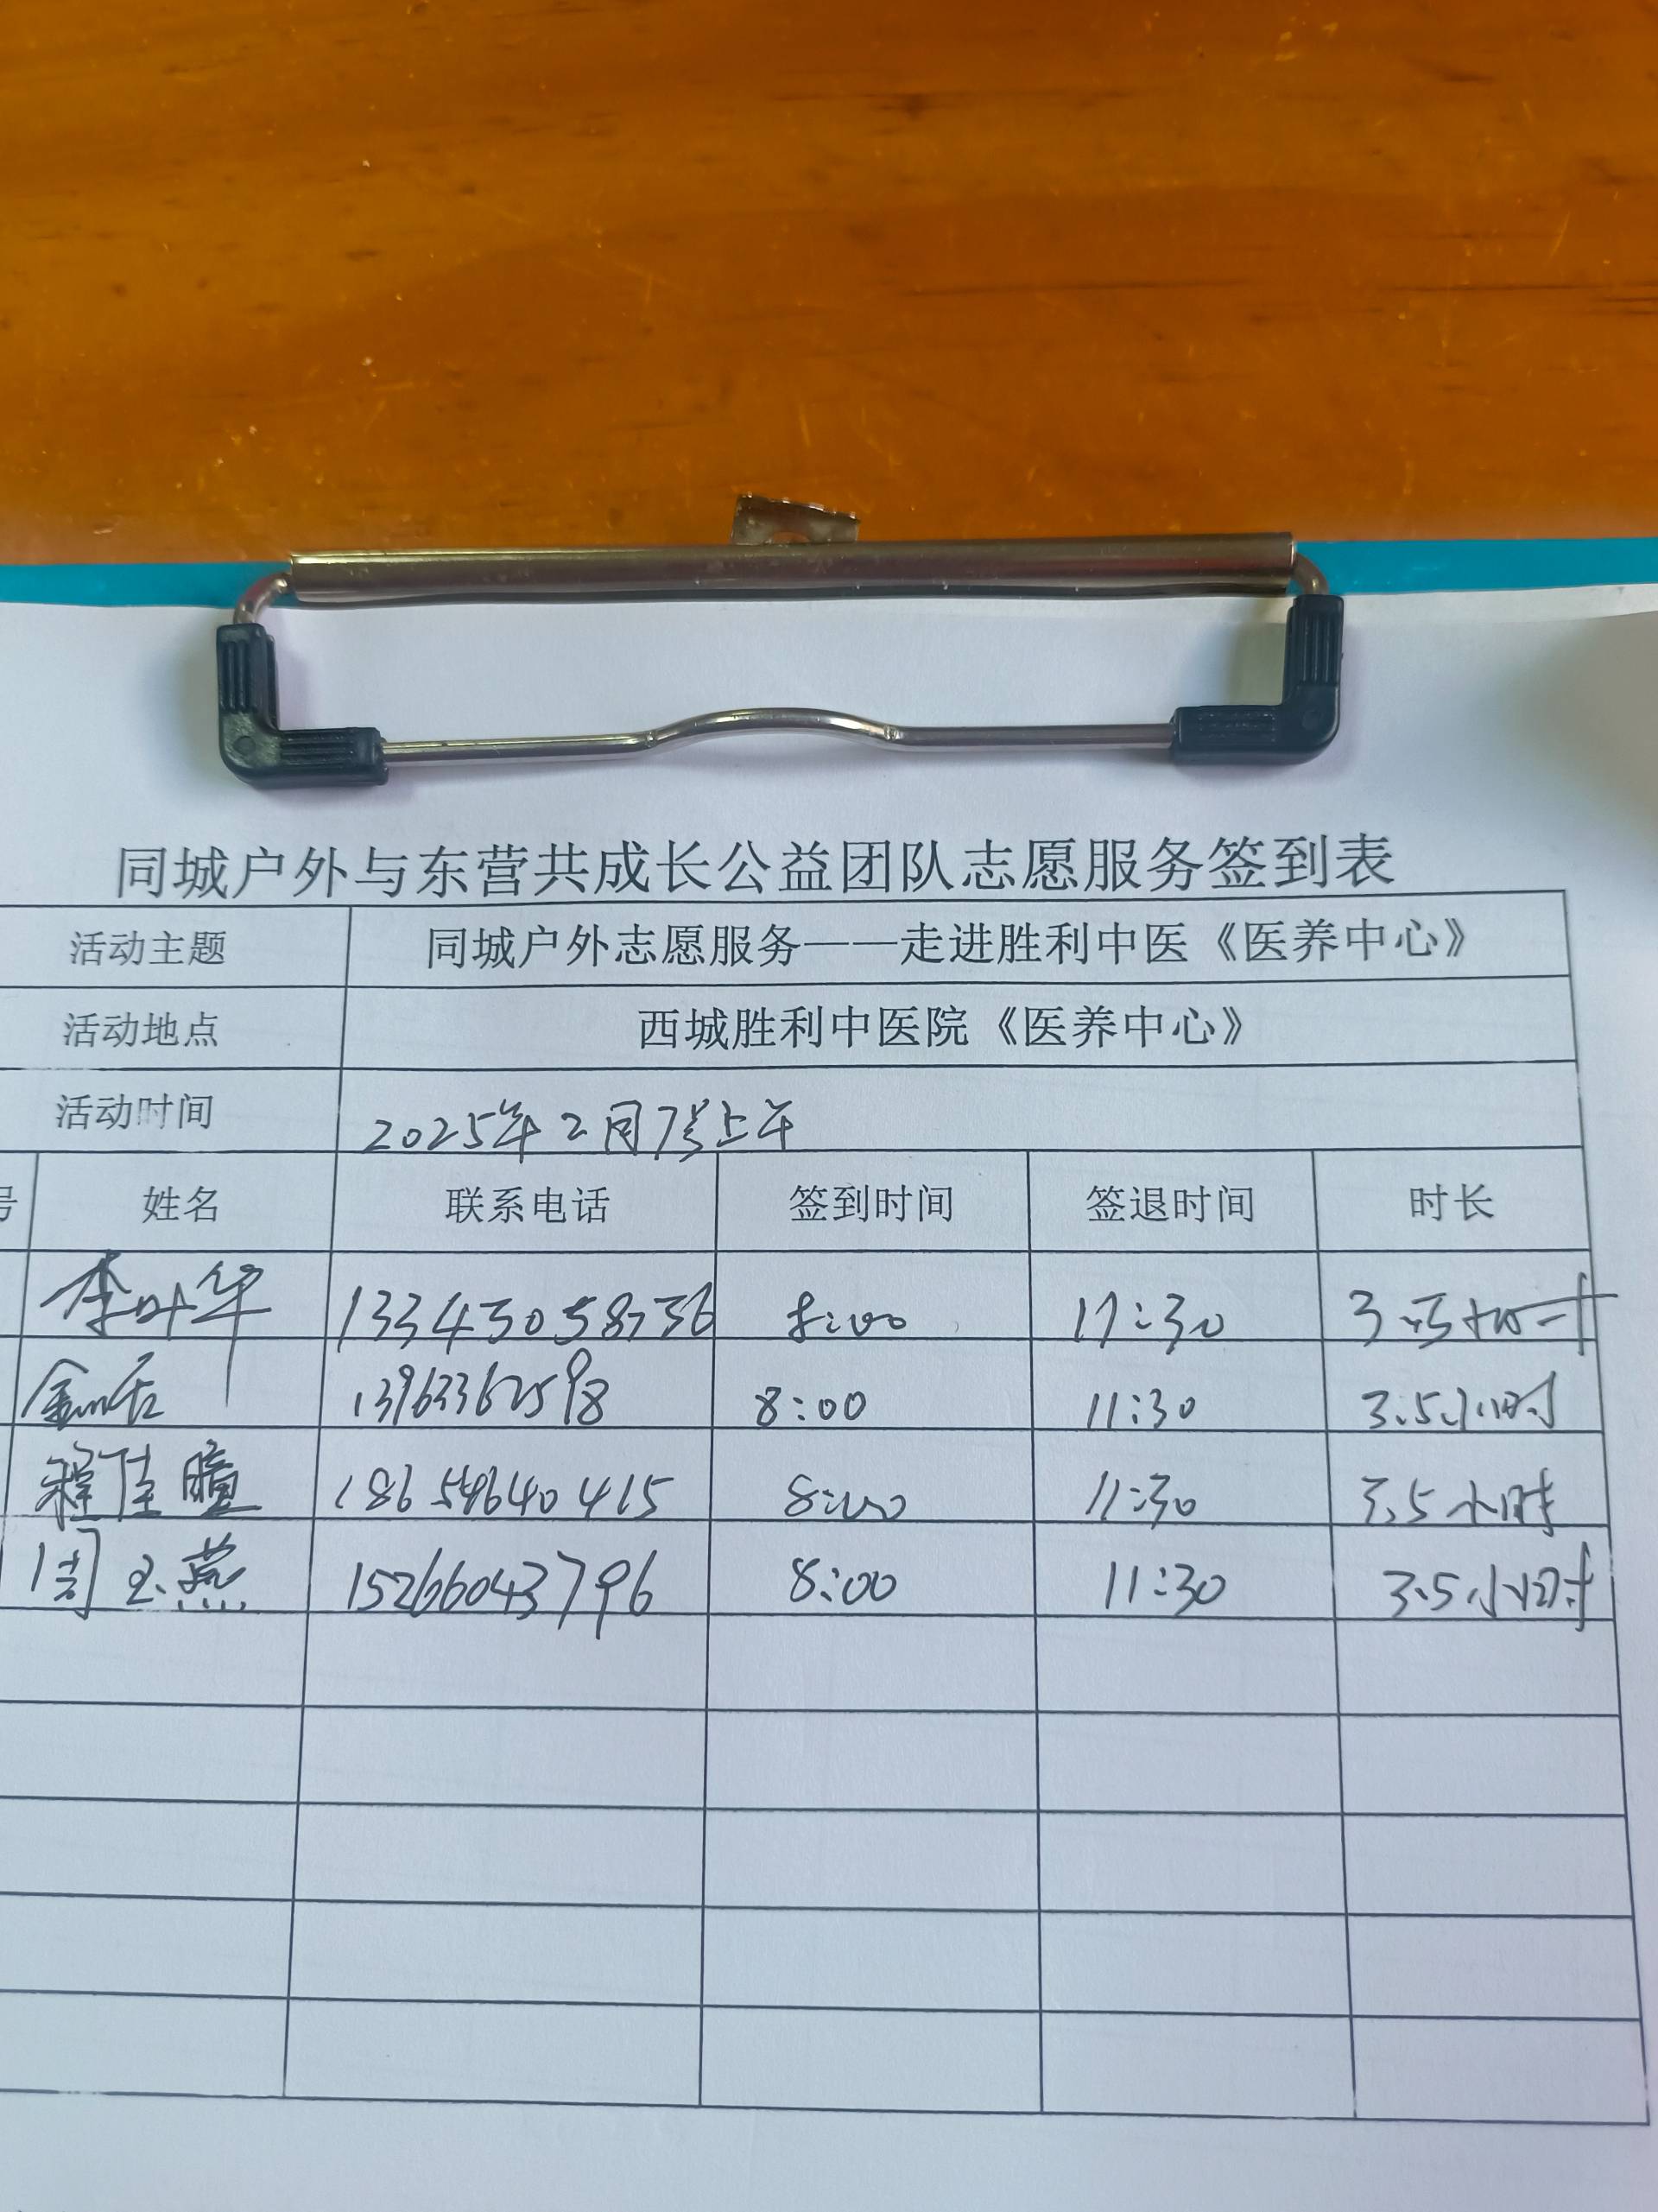 同城户外与东营共成长公益团队志愿服务签到表
活动主题 同城户外志愿服务——走进胜利中医《医养中心》
活动地点 西城胜利中医院《医养中心》
活动时间 2025年2月7号上午
号 姓名 联系电话 签到时间 签退时间 时长
李叶华 8:00 11:30 3.5小时
13963362598 8:00 11:30 3.5小时
程佳瞳 18654640415 8:00 11:30 3.5小时
周玉燕 15266043796 8:00 11:30 3.5小时